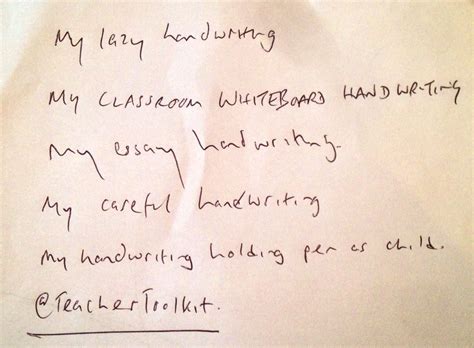 My lazy handwriting
My CLASSROOM WHITEBOARD HANDWRITING
My essay handwriting.
My careful handwriting
My handwriting holding pen as child.
@TeacherToolkit.